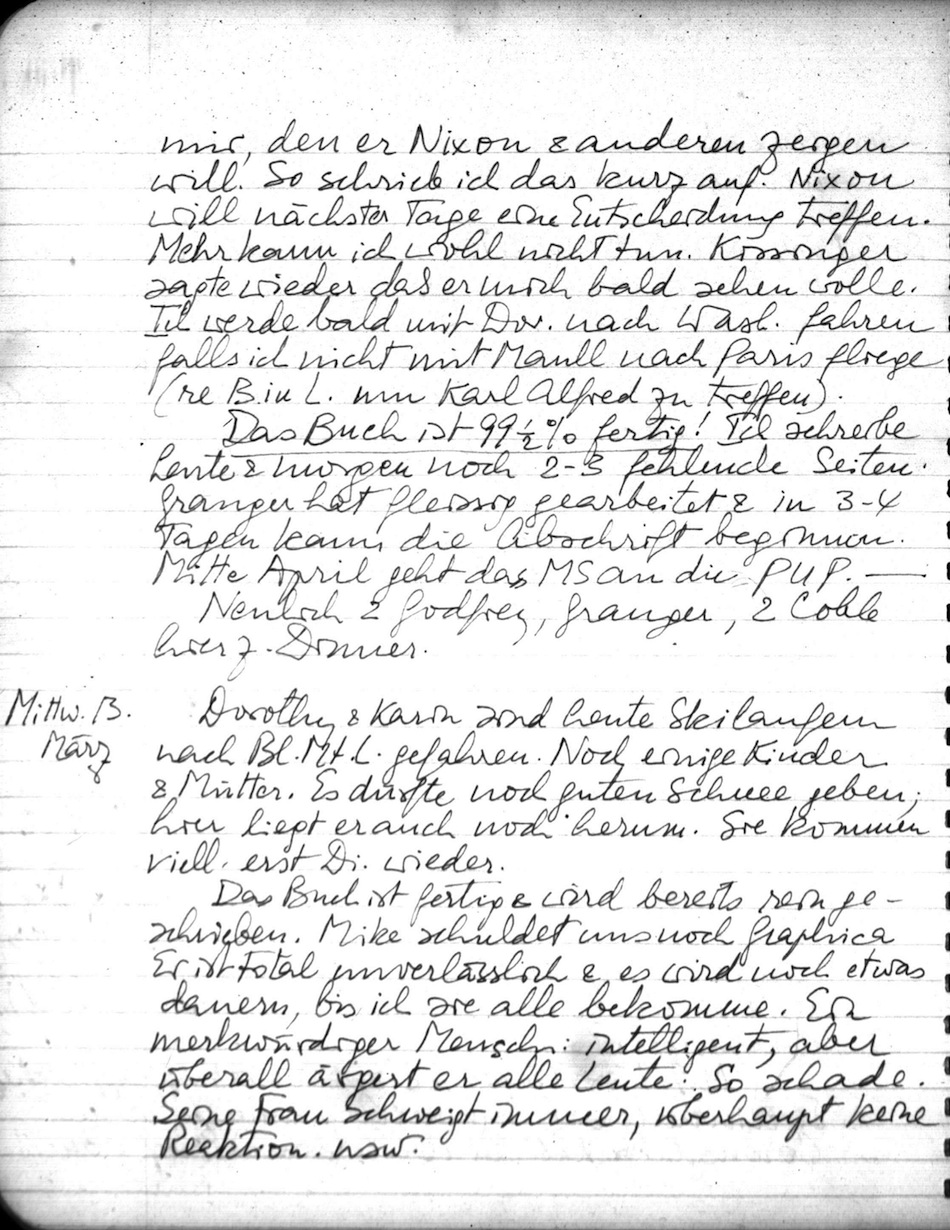 mir, den er Nixon & anderen zeigen
will. So schrieb ich das kurz auf. Nixon
will nächster Tage eine Entscheidung treffen.
Mehr kann ich wohl nicht tun. Kissinger
sagte wieder daß er mich bald sehen wolle.
Ich werde bald mit Dor. nach Wash. fahren
falls ich nicht mit Maull nach Paris fliege
(re B. in L. um Karl Alfred zu treffen).
Das Buch ist 99 1/2 % fertig! Ich schreibe
heute & morgen noch 2-3 fehlende Seiten.
Granger hat fleissig gearbeitet & in 3-4
Tagen kann die Abschrift beginnen.
Mitte April geht das MS an die PUP. —
Neulich 2 Godfrey, Granger, 2 Coble
hier z. Dinner.
Mittw. 13. März
Dorothy & Karin sind heute Skilaufen
nach Bl. Mt. L. gefahren. Noch einige Kinder
& Mütter. Es dürfte noch guten Schnee geben;
hier liegt er auch noch herum. Sie kommen
viell. erst Di. wieder.
Das Buch ist fertig & wird bereits rein ge-
schrieben. Mike schuldet uns noch Graphica
Er ist total unverlässlich & es wird noch etwas
dauern, bis ich sie alle bekomme. Ein
merkwürdiger Mensch: intelligent, aber
überall ärgert er alle Leute. So schade.
Seine Frau schweigt immer, überhaupt keine
Reaktion. usw.